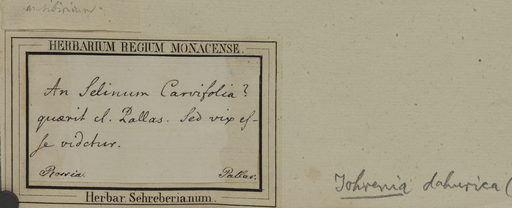 HERBARIUM REGIUM MONACENSE.
An Selinum Carvifolia?
quærit cl. Pallas. Sed vix es-
se videtur.
Rossia. Pallas.
Herbar. Schreberianum.
Johrenia dahurica (